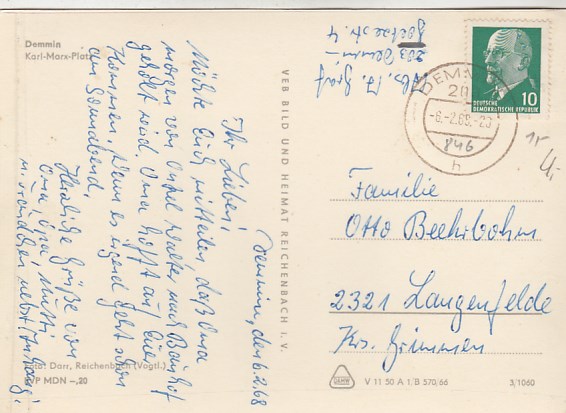 Demmin
Karl-Marx-Platz
Demmin, den 6.2.68
Ihr Lieben!
Möchte Euch mitteilen, daß Oma
morgen von Onkel Walter nach
geholt wird. Oma hofft auf Euer
Kommen, wenn es irgend geht schon
am Sonnabend.
Herzliche Grüße von
Oma, Mutti
u.
Foto: Darr, Reichenbach (Vogtl.)
EVP MDN -,20
VEB BILD UND HEIMAT REICHENBACH I. V.
Abs. Graf
203 Demmin
str. 4
DEMMIN
20
-6.-2.68.-20
h
DEUTSCHE
DEMOKRATISCHE REPUBLIK
10
846
1,-
4,-
Familie
Otto Beehrbohm
2321 Langenfelde
Krs. Grimmen
V 11 50 A 1/B 570/66
3/1060